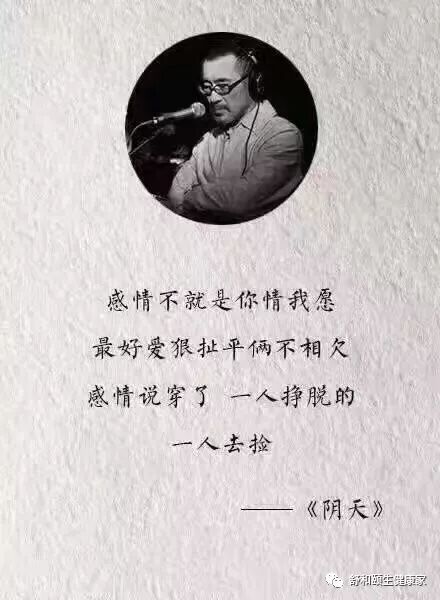 感情不就是你情我愿
最好爱狠扯平俩不相欠
感情说穿了 一人挣脱的
一人去捡
——《阴天》
舒和颐生健康家